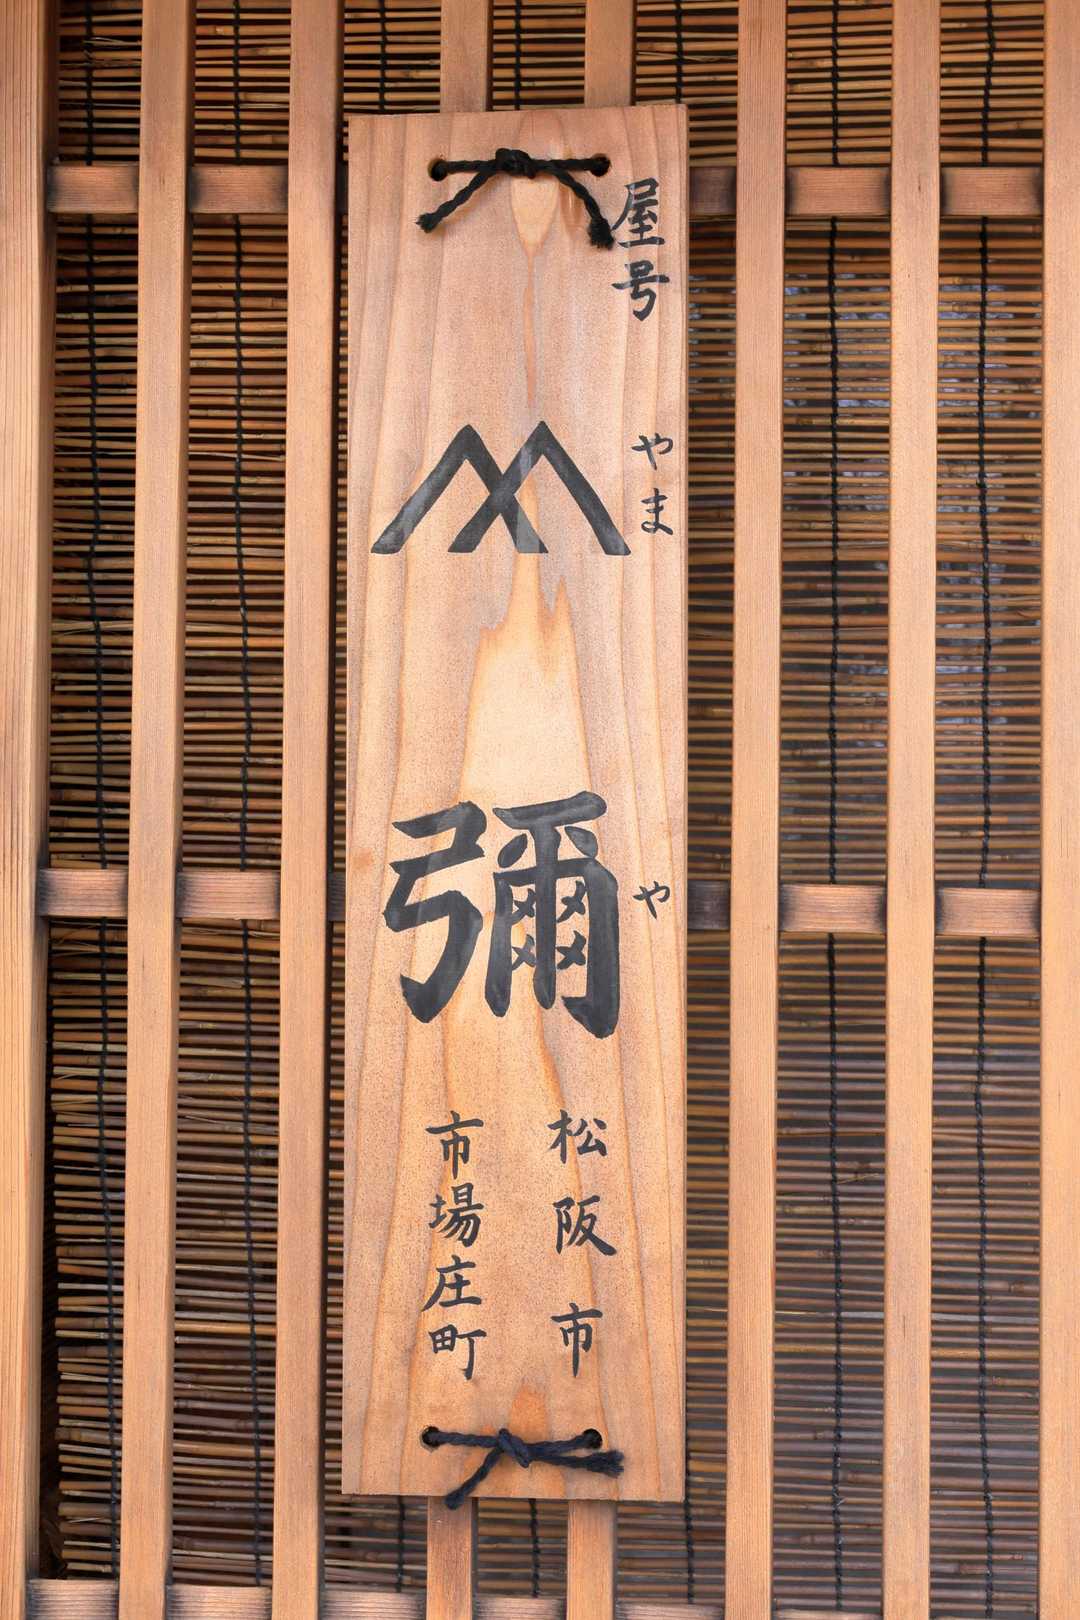 屋号
やま
彌
や
松阪市
市場庄町